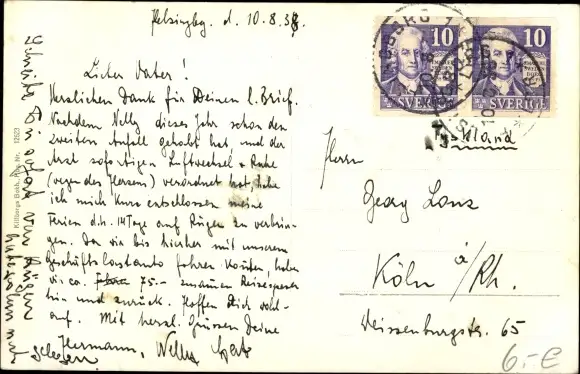 Helsingbg. d. 10.8.38.
Lieber Vater!
Herzlichen Dank für Deinen l. Brief.
Nachdem Nelly dieses Jahr schon den
zweiten Anfall gehabt hat, und der
Arzt sofortigen Luftwechsel & Ruhe
(wegen des Herzens) verordnet hat, habe
ich mich kurz entschlossen meine
Ferien d.h. 14 Tage auf Rügen zu verbrin-
gen. Da wir bis hierher mit unserem
Geschäfts auto fahren konnten, haben
wir ca. 75.- zusammen Reisespesen
hin und zurück. Hoffen Dich wohl-
auf. Mit herzl. Grüssen Deine
Hermann, Nelly
Schicke Dir auf Rügen
gelesen.
Killbergs Bokh. Hbg. Nr. 12823
10
10
SVERIGE
SVERIGE
Herrn
Georg Lanz
Köln a/Rh.
Weissenburgstr. 65
6,-€